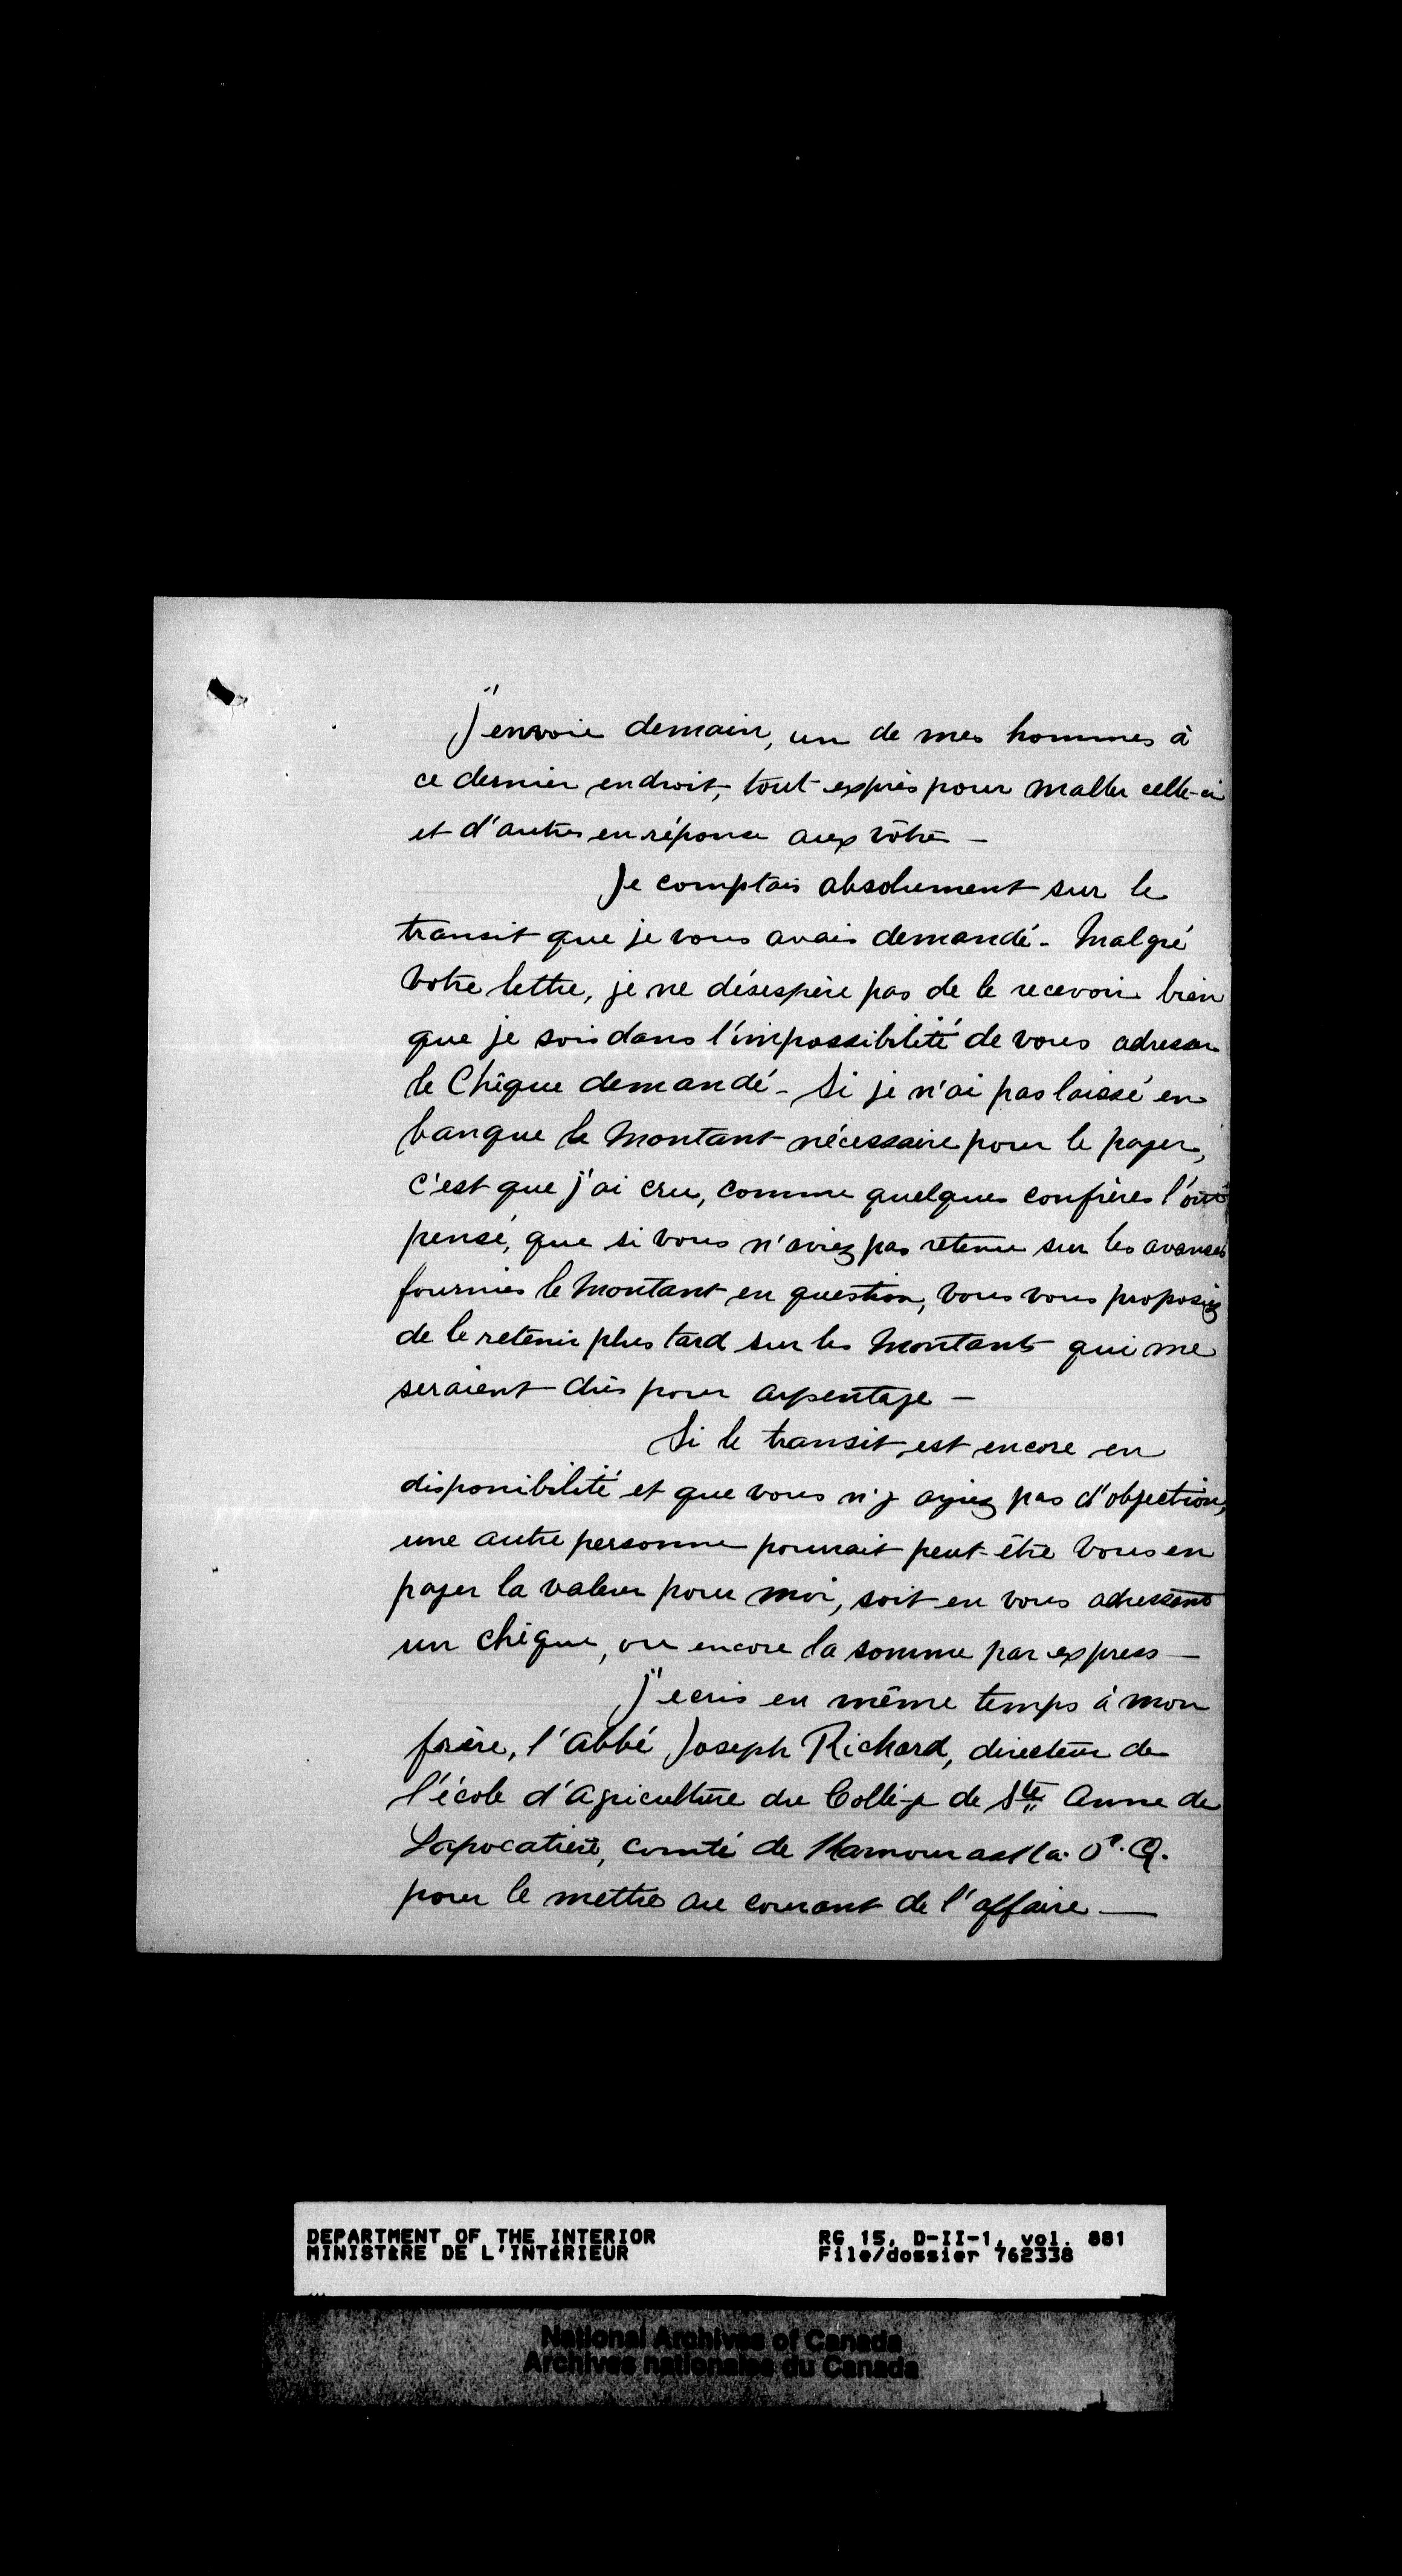 J'envoie demain, un de mes hommes à
ce dernier endroit, tout exprès pour maller celle-ci
et d'autres en réponse aux vôtres –
Je comptais absolument sur le
transit que je vous avais demandé – Malgré
votre lettre, je ne désespère pas de le recevoir bien
que je sois dans l'impossibilité de vous adresser
le Chèque demandé – Si je n'ai pas laissé en
banque le montant nécessaire pour le payer,
c'est que j'ai cru, comme quelques confrères l'ont
pensé, que si vous n'aviez pas retenu sur les avances
fournies le montant en question, vous vous proposiez
de le retenir plus tard sur les montants qui me
seraient dûs pour arpentage –
Si le transit est encore en
disponibilité et que vous n'y ayiez pas d'objection,
une autre personne pourrait peut-être vous en
payer la valeur pour moi, soit en vous adressant
un chèque, ou encore la somme par express –
J'ecris en même temps à mon
frère, l'abbé Joseph Richard, directeur de
l'école d'Agriculture du Collège de Ste Anne de
Lapocatière, comté de Kamouraska. P.Q.
pour le mettre au courant de l'affaire —
DEPARTMENT OF THE INTERIOR RG 15, D-II-1, vol. 881
MINISTÈRE DE L'INTÉRIEUR File/dossier 762338
National Archives of Canada
Archives nationales du Canada